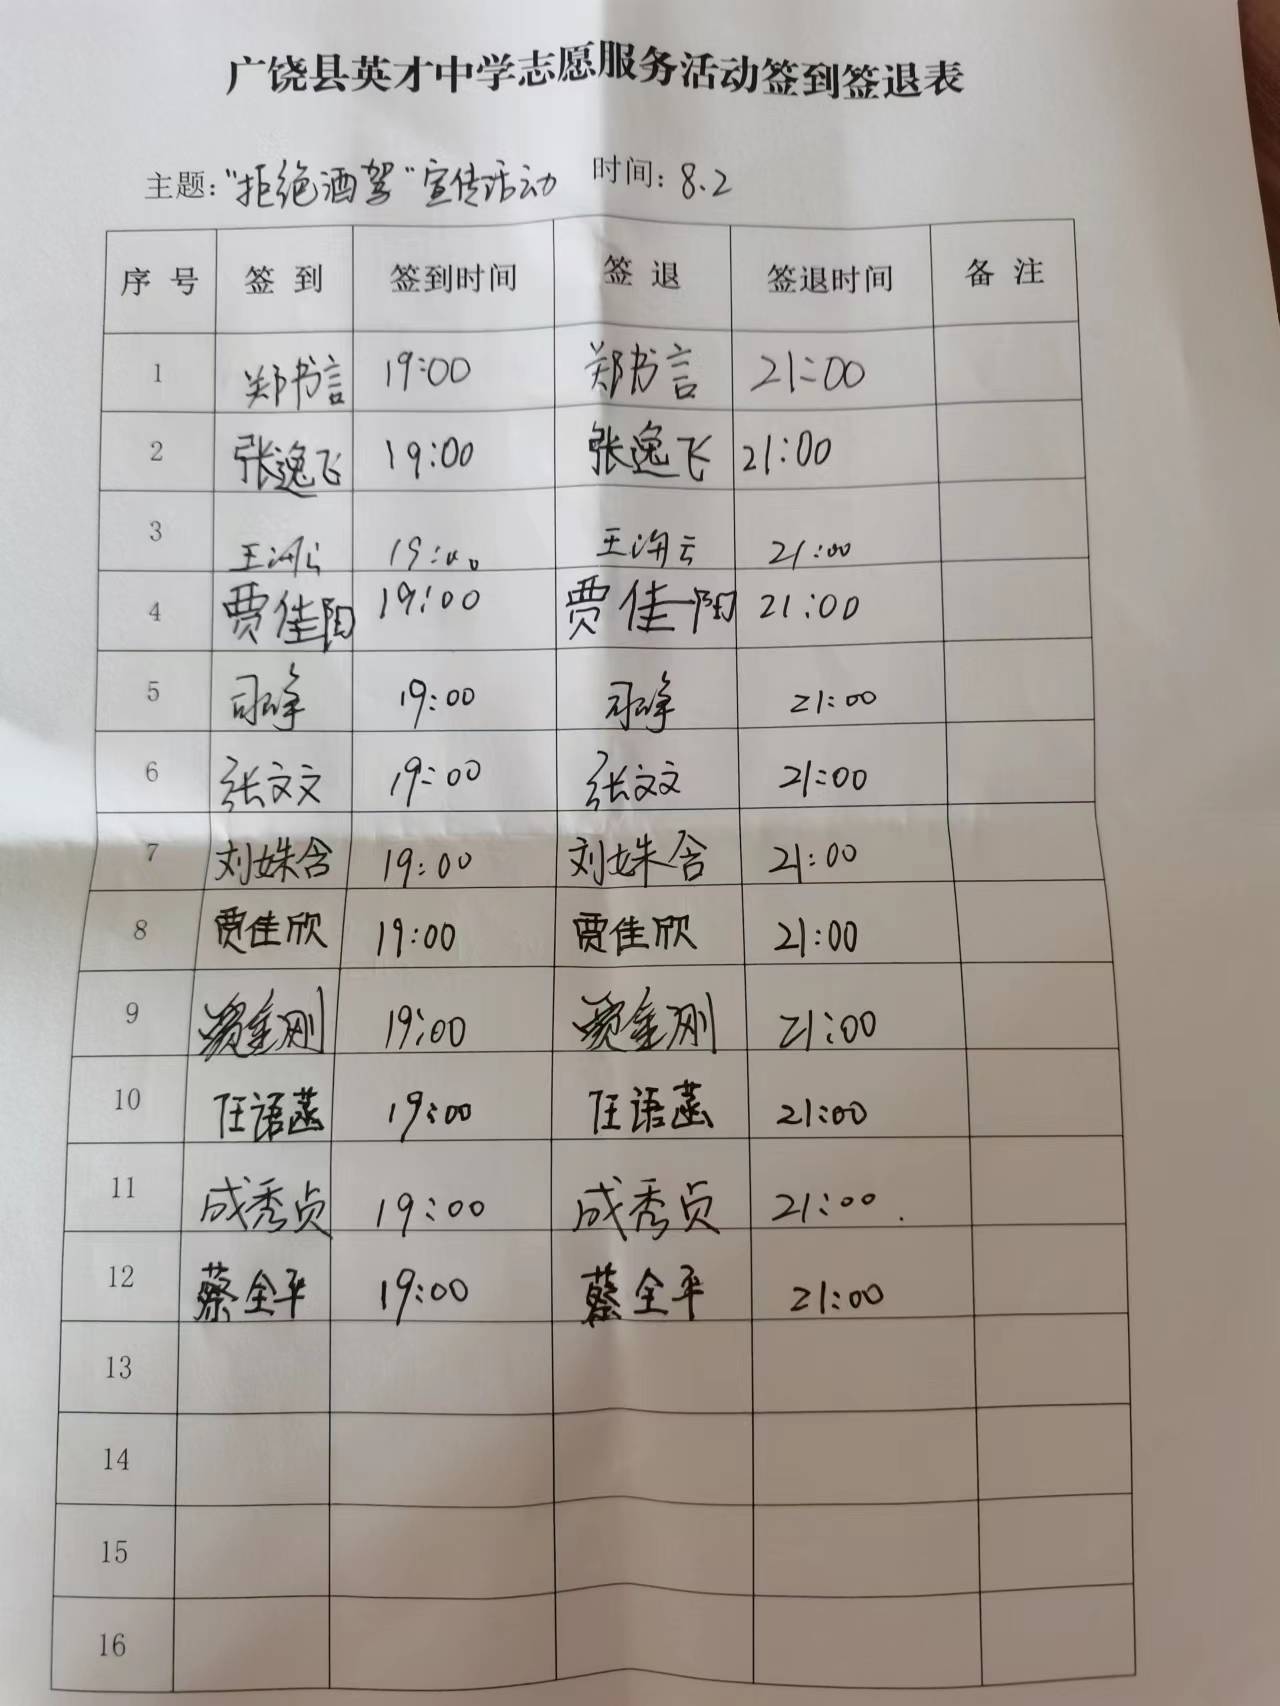 广饶县英才中学志愿服务活动签到签退表
主题：“拒绝酒驾”宣传活动 时间：8.2
序号 签到 签到时间 签退 签退时间 备注
1 郑书言 19:00 郑书言 21:00
2 张逸飞 19:00 张逸飞 21:00
3 王海云 19:00 王海云 21:00
4 贾佳阳 19:00 贾佳阳 21:00
5 司峥 19:00 司峥 21:00
6 张文文 19:00 张文文 21:00
7 刘姝含 19:00 刘姝含 21:00
8 贾佳欣 19:00 贾佳欣 21:00
9 贾金刚 19:00 贾金刚 21:00
10 任语菡 19:00 任语菡 21:00
11 成秀贞 19:00 成秀贞 21:00
12 蔡全平 19:00 蔡全平 21:00
13
14
15
16